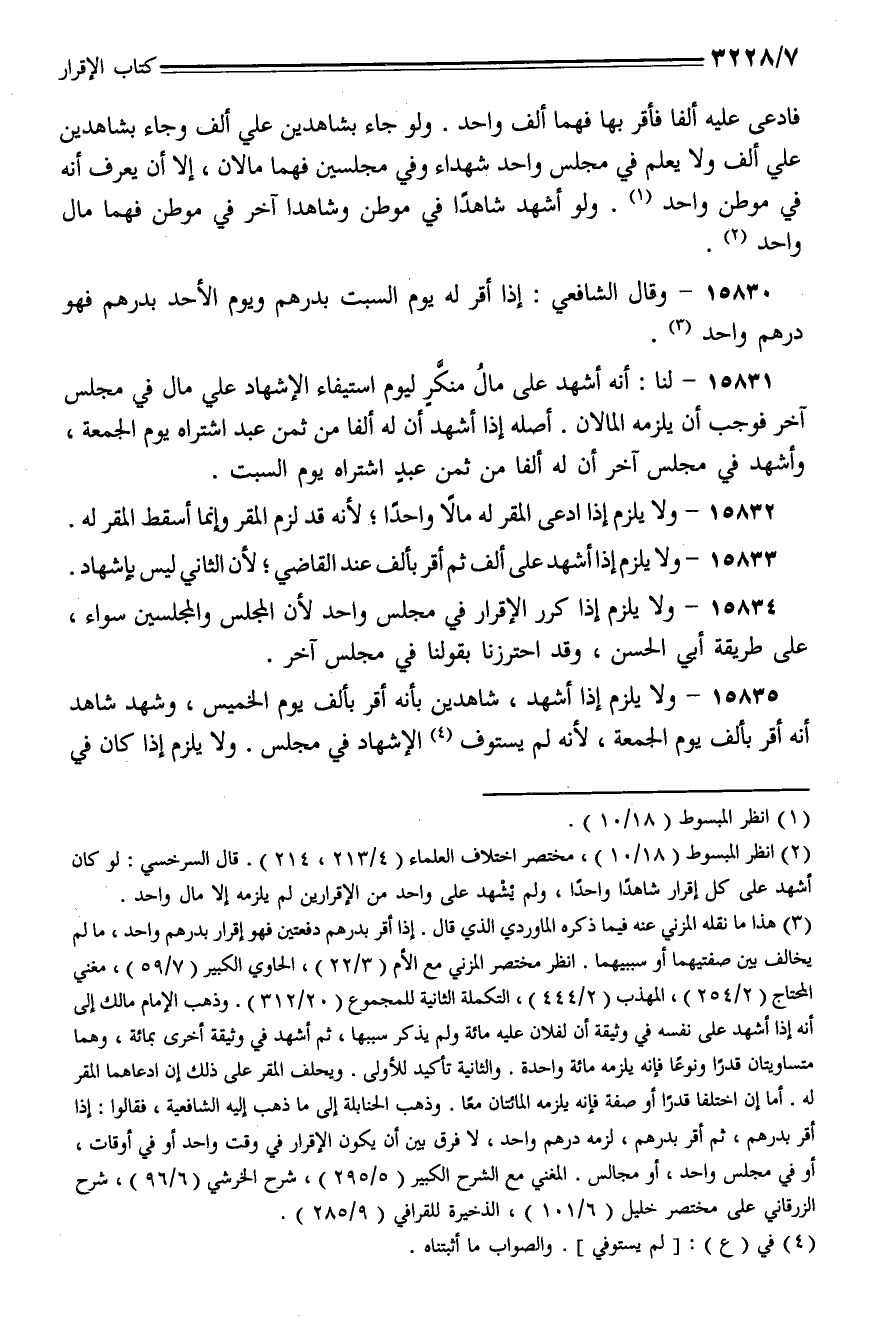 ٣٢٢٨/٧ كتاب الإقرار
فادعى عليه ألفا فأقر بها فهما ألف واحد . ولو جاء بشاهدين علي ألف وجاء بشاهدين
علي ألف ولا يعلم في مجلس واحد شهداء وفي مجلسين فهما مالان ، إلا أن يعرف أنه
في موطن واحد (١) . ولو أشهد شاهدًا في موطن وشاهدا آخر في موطن فهما مال
واحد (٢) .
١٥٨٣٠ – وقال الشافعي : إذا أقر له يوم السبت بدرهم ويوم الأحد بدرهم فهو
درهم واحد (٣) .
١٥٨٣١ – لنا : أنه أشهد على مالُ منكَّرٍ ليوم استيفاء الإشهاد علي مال في مجلس
آخر فوجب أن يلزمه المالان . أصله إذا أشهد أن له ألفا من ثمن عبد اشتراه يوم الجمعة ،
وأشهد في مجلس آخر أن له ألفا من ثمن عبدٍ اشتراه يوم السبت .
١٥٨٣٢ – ولا يلزم إذا ادعى المقر له مالًا واحدًا ؛ لأنه قد لزم المقر وإنما أسقط المقر له .
١٥٨٣٣ – ولا يلزم إذا أشهد على ألف ثم أقر بألف عند القاضي ؛ لأن الثاني ليس بإشهاد .
١٥٨٣٤ – ولا يلزم إذا كرر الإقرار في مجلس واحد لأن المجلس والمجلسين سواء ،
على طريقة أبي الحسن ، وقد احترزنا بقولنا في مجلس آخر .
١٥٨٣٥ – ولا يلزم إذا أشهد ، شاهدين بأنه أقر بألف يوم الخميس ، وشهد شاهد
أنه أقر بألف يوم الجمعة ، لأنه لم يستوف (٤) الإشهاد في مجلس . ولا يلزم إذا كان في
(١) انظر المبسوط ( ١٠/١٨ ) .
(٢) انظر المبسوط ( ١٠/١٨ ) ، مختصر اختلاف العلماء ( ٢١٣/٤ ، ٢١٤ ) . قال السرخسي : لو كان
أشهد على كل إقرار شاهدًا واحدًا ، ولم يُشْهد على واحد من الإقرارين لم يلزمه إلا مال واحد .
(٣) هذا ما نقله المزني عنه فيما ذكره الماوردي الذي قال . إذا أقر بدرهم دفعتين فهو إقرار بدرهم واحد ، ما لم
يخالف بين صفتيهما أو سببيهما . انظر مختصر المزني مع الأم ( ٢٢/٣ ) ، الحاوي الكبير ( ٥٩/٧ ) ، مغني
المحتاج ( ٢٥٤/٢ ) ، المهذب ( ٤٤٤/٢ ) ، التكملة الثانية للمجموع ( ٣١٢/٢٠ ) . وذهب الإمام مالك إلى
أنه إذا أشهد على نفسه في وثيقة أن لفلان عليه مائة ولم يذكر سببها ، ثم أشهد في وثيقة أخرى بمائة ، وهما
متساويتان قدرًا ونوعًا فإنه يلزمه مائة واحدة . والثانية تأكيد للأولى . ويحلف المقر على ذلك إن ادعاهما المقر
له . أما إن اختلفا قدرًا أو صفة فإنه يلزمه المائتان معًا . وذهب الحنابلة إلى ما ذهب إليه الشافعية ، فقالوا : إذا
أقر بدرهم ، ثم أقر بدرهم ، لزمه درهم واحد ، لا فرق بين أن يكون الإقرار في وقت واحد أو في أوقات ،
أو في مجلس واحد ، أو مجالس . المغني مع الشرح الكبير ( ٢٩٥/٥ ) ، شرح الخرشي ( ٩٦/٦ ) ، شرح
الزرقاني على مختصر خليل ( ١٠١/٦ ) ، الذخيرة للقرافي ( ٢٨٥/٩ ) .
(٤) في ( ع ) : [ لم يستوفي ] . والصواب ما أثبتناه .